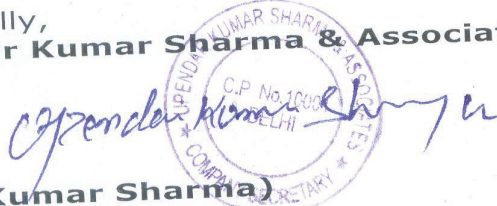 lly,
r Kumar Sharma & Associa
UPENDAR KUMAR SHARMA & ASSOCIATES
C.P No.1000
DELHI
★ COMPANY SECRETARY ★
Upendar Kumar Sharma
Kumar Sharma)